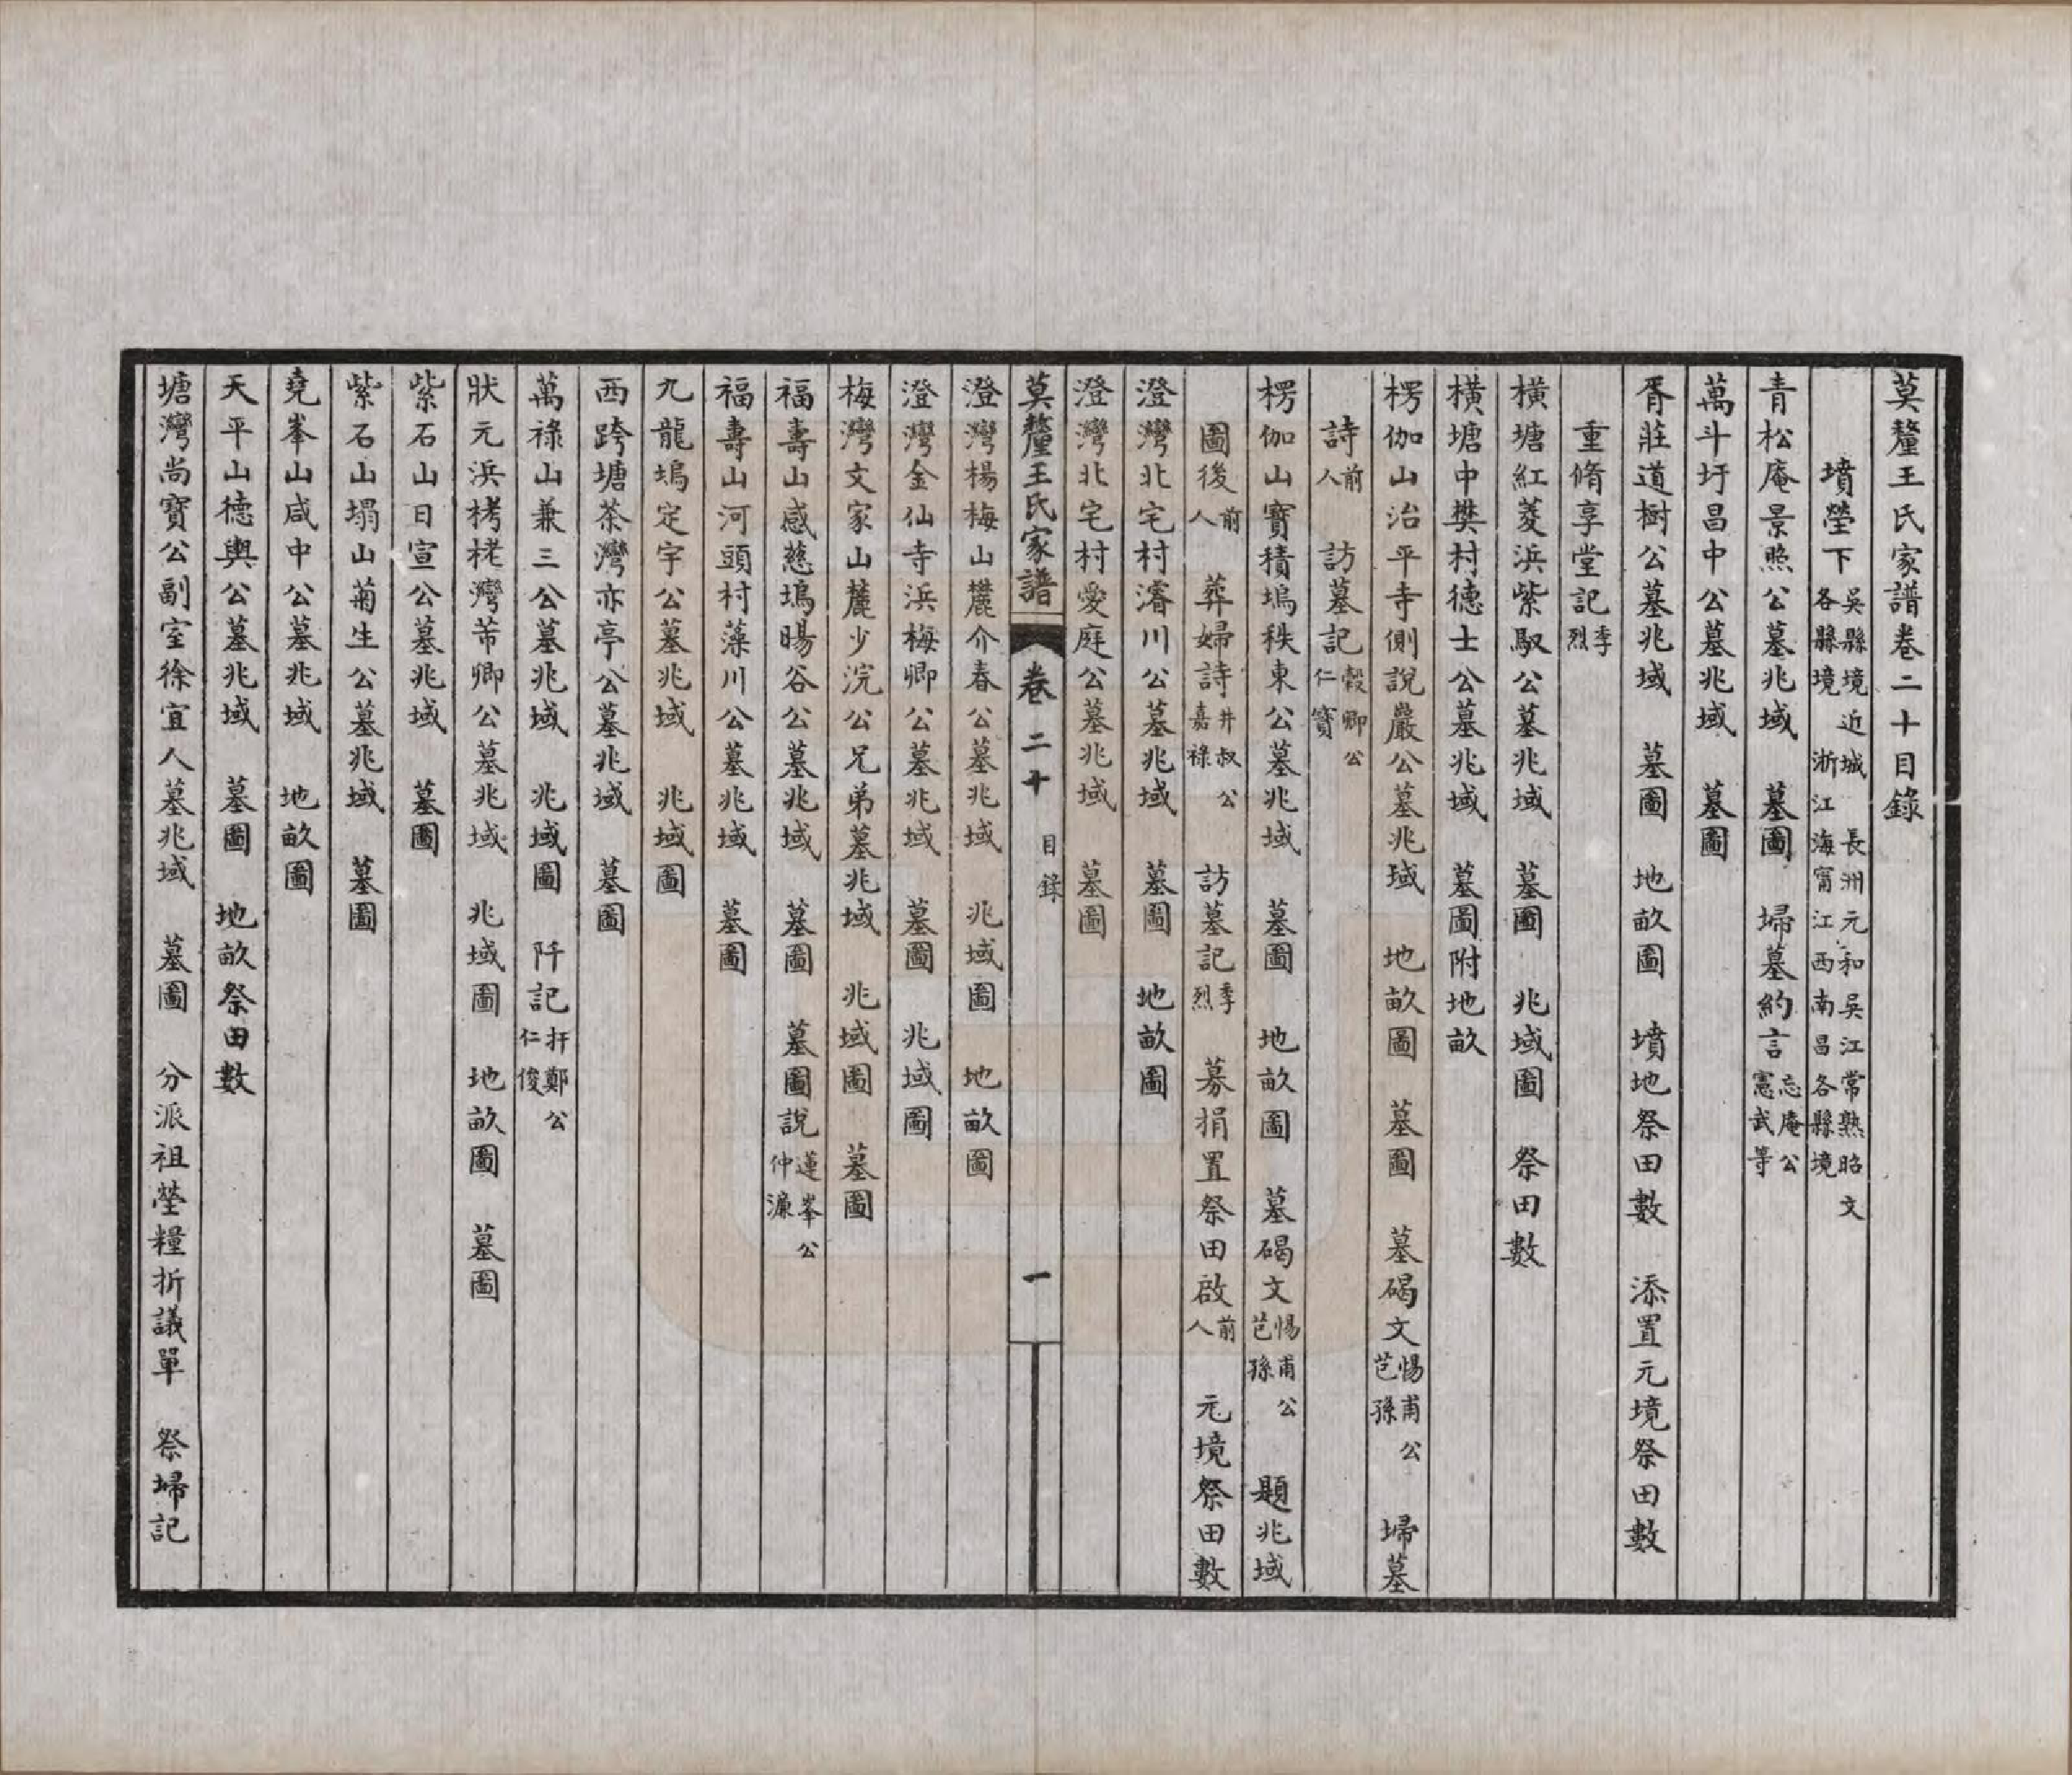 莫釐王氏家譜卷二十目錄
墳塋下吳縣境近城 長洲元和吳江常熟昭文各縣境 浙江海甯江西南昌各縣境
青松庵景熙公墓兆域 墓圖 埽墓約言忘庵公憲武等
萬斗圩昌中公墓兆域 墓圖
胥莊道樹公墓兆域 墓圖 地畝圖 墳地祭田數 添置元境祭田數
重脩享堂記季烈
橫塘紅菱浜紫馭公墓兆域 墓圖 兆域圖 祭田數
橫塘中樊村德士公墓兆域 墓圖附地畝
楞伽山治平寺側說巖公墓兆域 地畝圖 墓圖 墓碣文惕甫公芑孫 埽墓
詩前人 訪墓記穀卿公仁寶
楞伽山寶積塢秩東公墓兆域 墓圖 地畝圖 墓碣文惕甫公芑孫 題兆域
圖後前人 葬婦詩井叔公嘉祿 訪墓記季烈 募捐置祭田啟前人 元境祭田數
澄灣北宅村濬川公墓兆域 墓圖 地畝圖
澄灣北宅村愛庭公墓兆域 墓圖
莫釐王氏家譜 卷二十 目錄 一
澄灣楊梅山麓介春公墓兆域 兆域圖 地畝圖
澄灣金仙寺浜梅卿公墓兆域 墓圖 兆域圖
梅灣文家山麓少浣公兄弟墓兆域 兆域圖 墓圖
福壽山感慈塢暘谷公墓兆域 墓圖 墓圖說蓮峯公仲濂
福壽山河頭村藻川公墓兆域 墓圖
九龍塢定宇公墓兆域 兆域圖
西跨塘茶灣亦亭公墓兆域 墓圖
萬祿山兼三公墓兆域 兆域圖 阡記扞鄭公仁俊
狀元浜栲栳灣芾卿公墓兆域 兆域圖 地畝圖 墓圖
紫石山日宣公墓兆域 墓圖
紫石山塌山菊生公墓兆域 墓圖
堯峯山咸中公墓兆域 地畝圖
天平山德輿公墓兆域 墓圖 地畝祭田數
塘灣尚寶公副室徐宜人墓兆域 墓圖 分派祖塋糧折議單 祭埽記